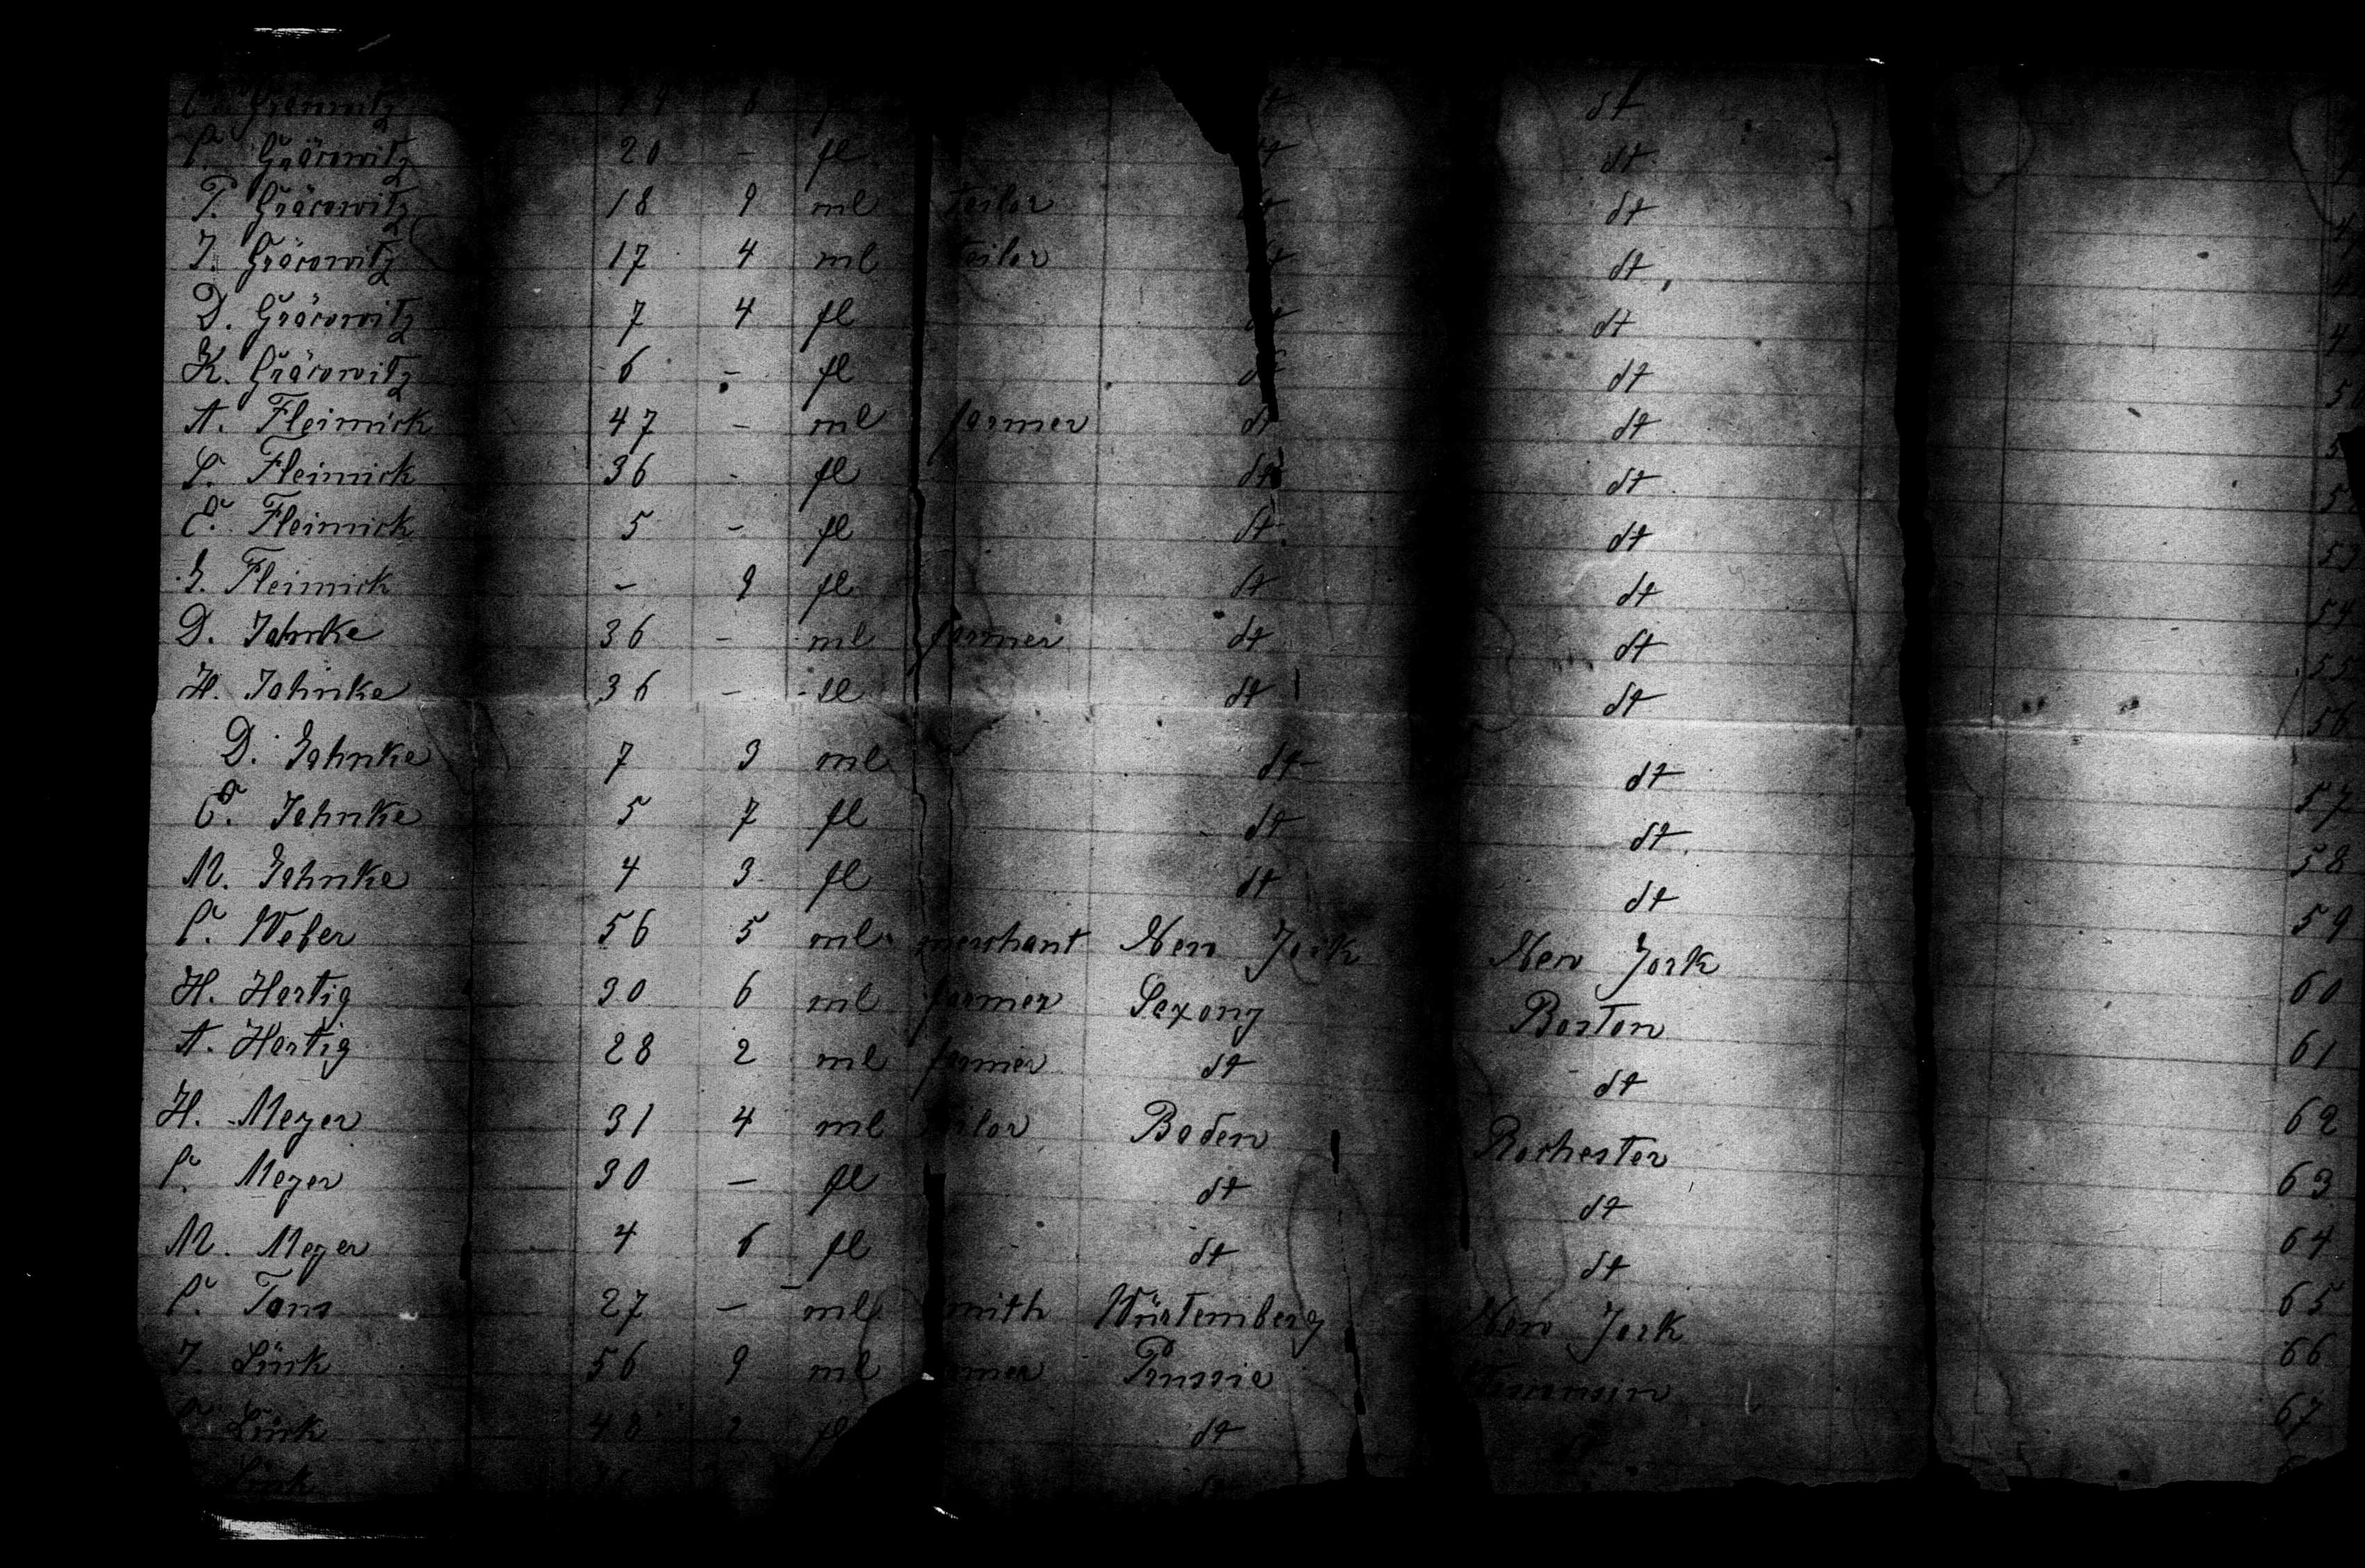 Gräcowitz 6 dt
Gräcowitz 20 - fl dt
T. Gräcowitz 18 9 ml tailor dt dt
J. Gräcowitz 17 4 ml tailor dt dt
D. Gräcowitz 7 4 fl dt dt
K. Gräcowitz 6 - fl dt dt
A. Fleimick 47 - ml farmer dt dt
Fleimick 36 - fl dt dt 52
Fleimick 5 - fl dt dt 53
Fleimick - 9 fl dt dt 54
D. Jahnke 36 - ml farmer dt dt 55
H. Jahnke 36 - fl dt dt 56
D. Jahnke 7 3 ml dt dt 57
Jahnke 5 7 fl dt dt 58
M. Jahnke 4 3 fl dt dt 59
Weber 56 5 ml merchant New York New York 60
H. Hartig 30 6 ml farmer Saxony Boston 61
A. Hartig 28 2 ml farmer dt dt 62
H. Meyer 31 4 ml tailor Baden Rochester 63
Meyer 30 - fl dt dt 64
M. Meyer 4 6 fl dt dt 65
Tams 27 - ml smith Würtemberg New York 66
J. Lück 56 9 ml Prussia Wisconsin 67
Lück 48 2 fl dt
Lück